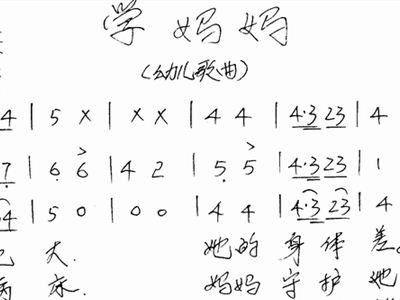 学妈妈
(幼儿歌曲)
4 | 5 X | X X | 4 4 | 4·3 23 | 4
7 | 6 6 | 4 2 | 5 5 | 4·3 23 | 1
4 | 5 0 | 0 0 | 4 4 | 4·3 23 | 4
大. 她的身体差
床. 妈妈守护她